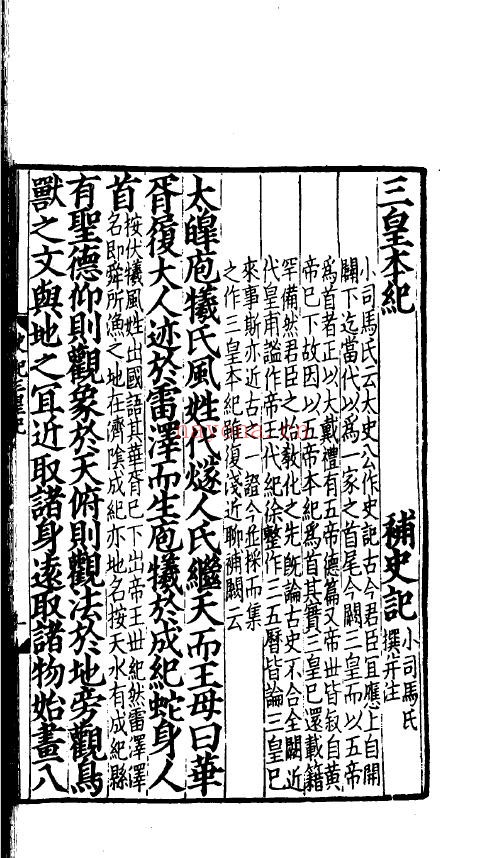 三皇本紀
補史記
小司馬氏
撰并注
小司馬氏云太史公作史記古今君臣宜應上自開
闢下迄當代以為一家之首尾今闕三皇而以五帝
為首者正以大戴禮有五帝德篇又帝丗皆叙自黃
帝巳下故因以五帝本紀為首其實三皇已還載籍
罕備然君臣之始教化之先旣論古史不合全闕近
代皇甫謐作帝王代紀徐整作三五曆皆論三皇巳
來事斯亦近古之一證今並採而集
之作三皇本紀雖復淺近聊補闕云
太皥庖犧氏風姓代燧人氏繼天而王母曰華
胥履大人迹於雷澤而生庖犧於成紀蛇身人
首
按伏犧風姓出國語其華胥巳下出帝王丗紀然雷澤澤
名即舜所漁之地在濟陰成紀亦地名按天水有成紀縣
有聖德仰則觀象於天俯則觀法於地旁觀鳥
獸之文與地之宜近取諸身遠取諸物始畫八
史記三皇紀
一